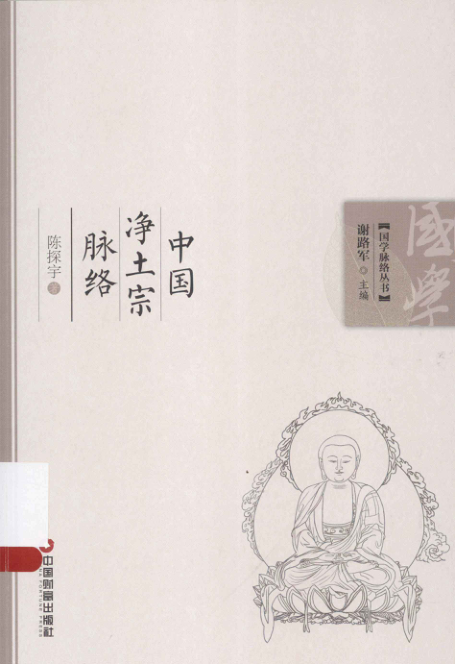 中国
净土宗
脉络
陈探宇 著
國學
【国学脉络丛书】
谢路军 主编
中国财富出版社
FORTUNE PRESS